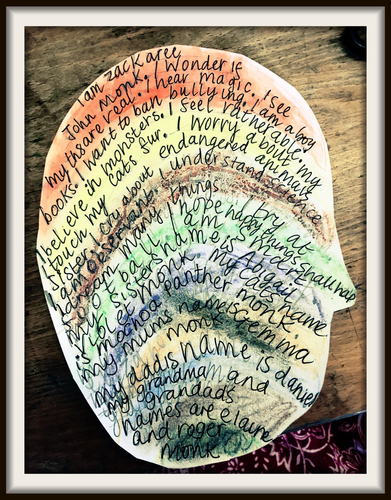 I am zackaree
John Monk. I Wonder if
myths are real. I hear magic. I see
books. I want to ban bullying. I am a boy
I believe in monsters. I feel rather big.
I touch my cats fur. I worry about my
sister. I cry about endangered animals
I am observant. I understand science
things I cry at
football. I hope happy things shall hap
my sisters name is Abigail
violet monk. my cats name
is mochoo panther monk
my mums name is
monk
my dads name is daniel
my grandmam and
my grandads
names are elaine
and roger
monk